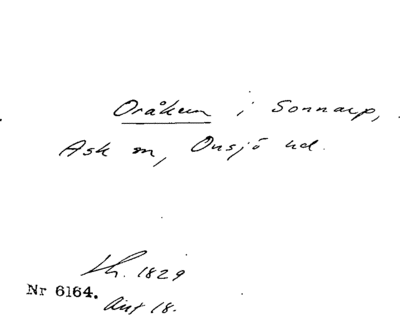 Oråkern i Sonnarp,
Ask sn, Onsjö hd.
Lh. 1829
Nr 6164.
Aint 18.